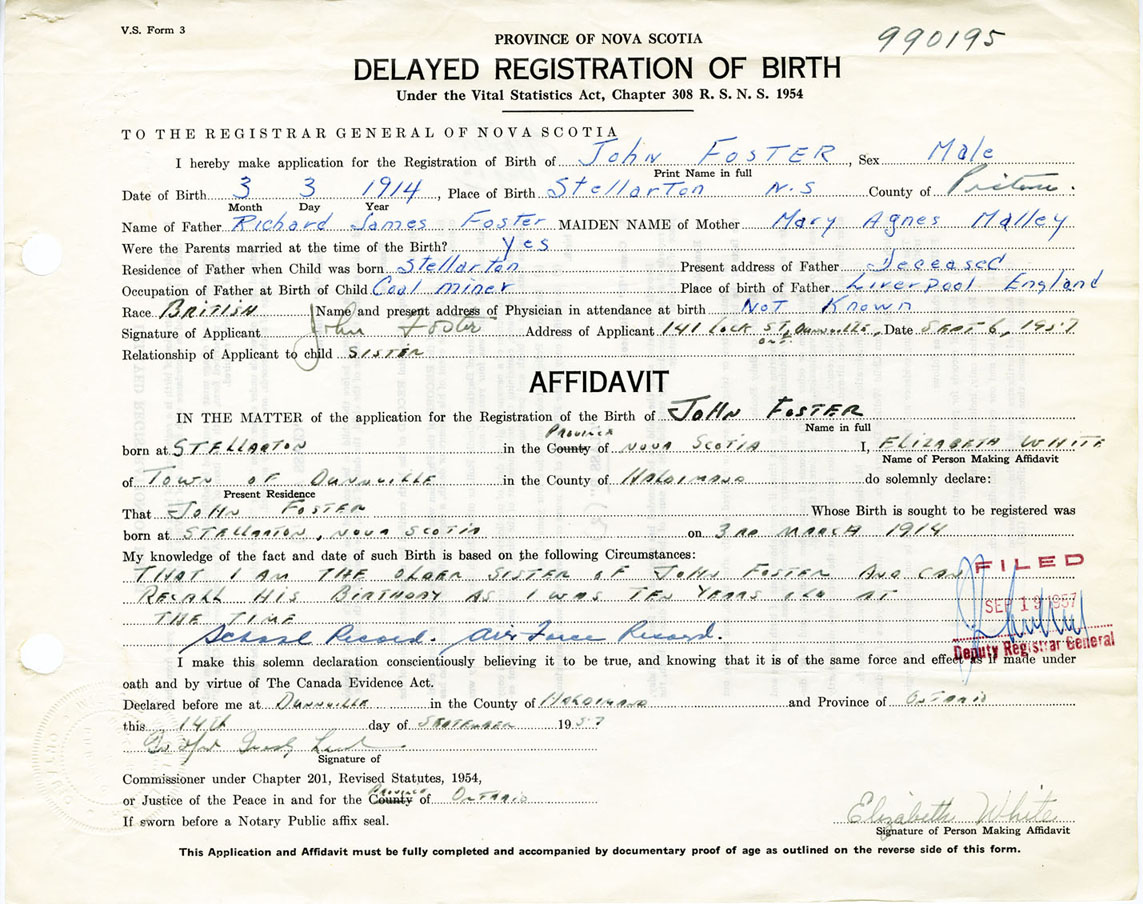 V.S. Form 3
990195
PROVINCE OF NOVA SCOTIA
DELAYED REGISTRATION OF BIRTH
Under the Vital Statistics Act, Chapter 308 R. S. N. S. 1954
TO THE REGISTRAR GENERAL OF NOVA SCOTIA
I hereby make application for the Registration of Birth of John FOSTER, Sex Male
Print Name in full
Date of Birth 3 3 1914, Place of Birth Stellarton N.S County of Pictou.
Month Day Year
Name of Father Richard James Foster MAIDEN NAME of Mother Mary Agnes Malley
Were the Parents married at the time of the Birth? Yes
Residence of Father when Child was born Stellarton Present address of Father Deceased
Occupation of Father at Birth of Child Coal miner Place of birth of Father Liverpool England
Race BRITISH Name and present address of Physician in attendance at birth Not Known
Signature of Applicant John Foster Address of Applicant 141 LOCK ST, Dunnville, Date SEPT 6, 1957
ONT.
Relationship of Applicant to child SISTER
AFFIDAVIT
IN THE MATTER of the application for the Registration of the Birth of JOHN FOSTER
Name in full
Province
born at STELLARTON in the County of NOVA SCOTIA I, ELIZABETH WHITE
Name of Person Making Affidavit
of TOWN OF DUNNVILLE in the County of HALDIMAND do solemnly declare:
Present Residence
That JOHN FOSTER Whose Birth is sought to be registered was
born at STELLARTON, NOVA SCOTIA on 3RD MARCH 1914
My knowledge of the fact and date of such Birth is based on the following Circumstances:
THAT I AM THE OLDER SISTER OF JOHN FOSTER AND CAN
RECALL HIS BIRTHDAY AS I WAS TEN YEARS OLD AT
THE TIME
School Record. Air Force Record.
FILED
SEP 19 1957
Deputy Registrar General
I make this solemn declaration conscientiously believing it to be true, and knowing that it is of the same force and effect as if made under
oath and by virtue of The Canada Evidence Act.
Declared before me at DUNNVILLE in the County of HALDIMAND and Province of ONTARIO
this 14th day of SEPTEMBER 1957
Signature of
Commissioner under Chapter 201, Revised Statutes, 1954,
Province
or Justice of the Peace in and for the County of ONTARIO
If sworn before a Notary Public affix seal.
Elizabeth White
Signature of Person Making Affidavit
This Application and Affidavit must be fully completed and accompanied by documentary proof of age as outlined on the reverse side of this form.